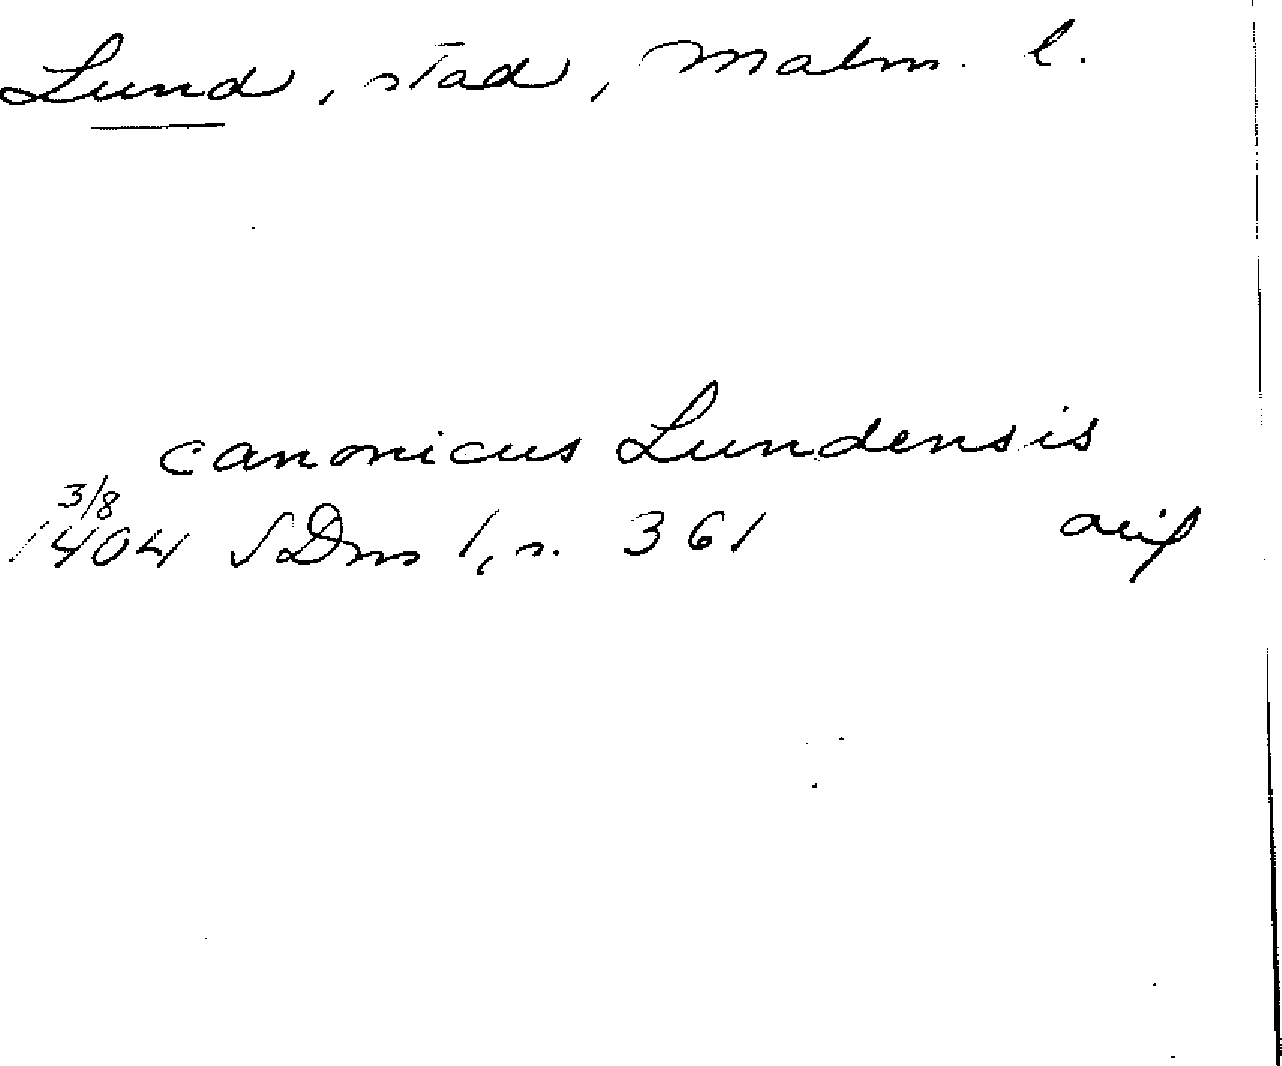 Lund, stad, Malm. l.
canonicus Lundensis
3/8
1404 SDns 1, s. 361